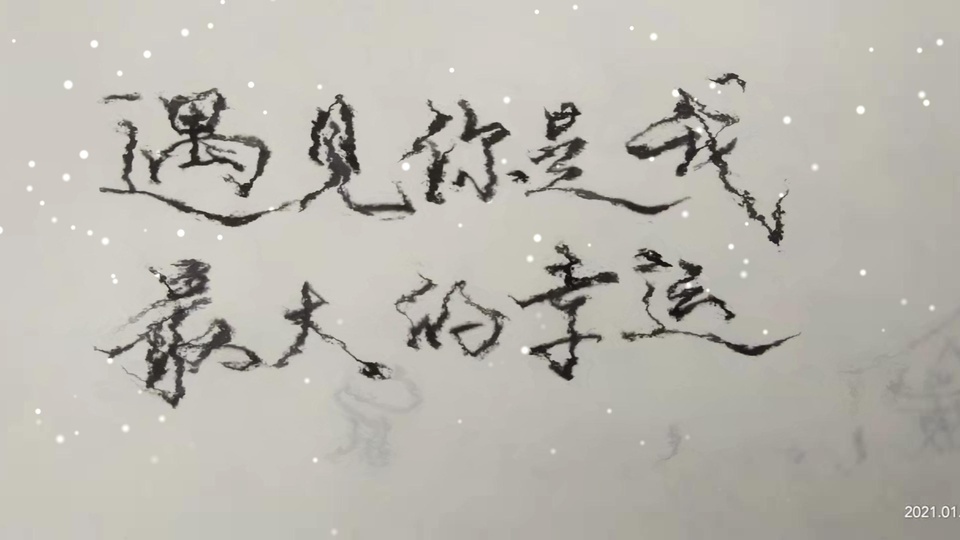 遇见你是我
最大的幸运
2021.01.